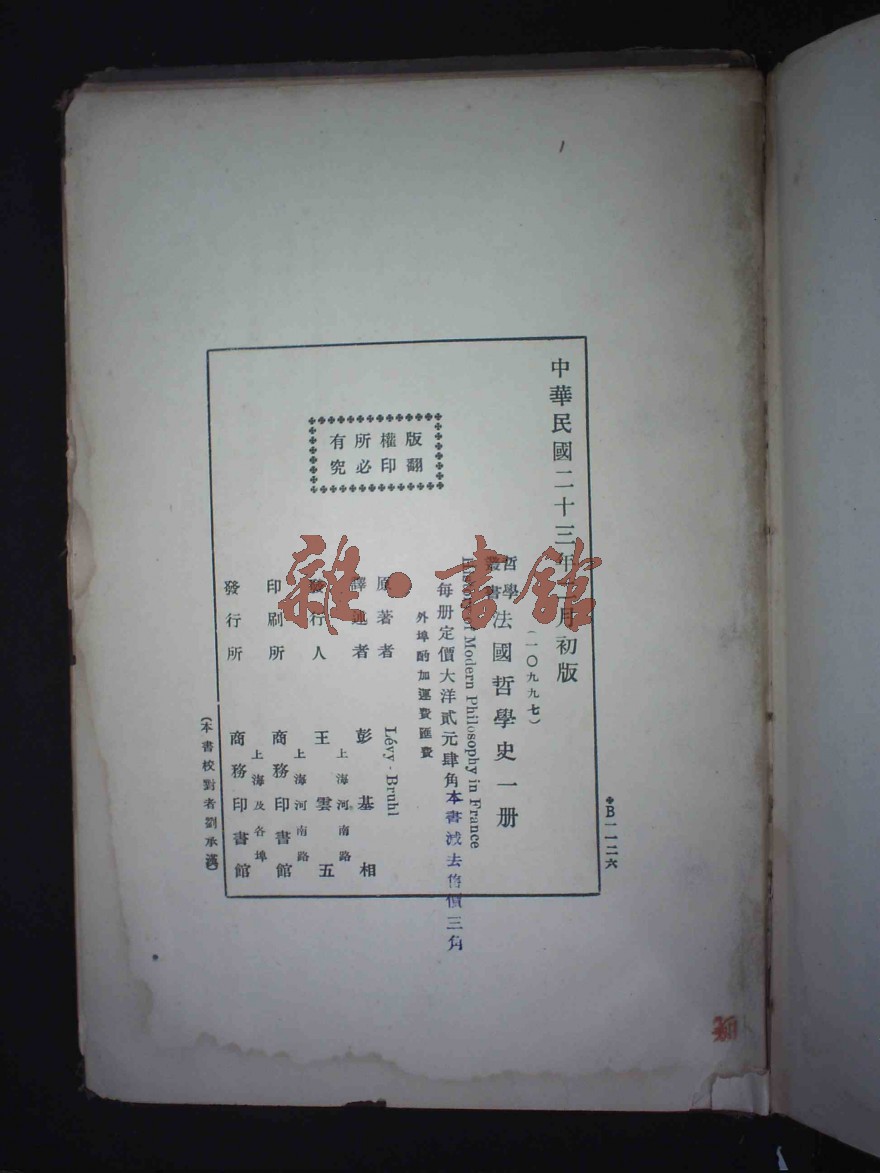 中華民國二十三年二月初版
(一〇九九七)
哲學
叢書 法國哲學史 一册
History of Modern Philosophy in France
每册定價大洋貳元肆角
本書減去售價三角
外埠酌加運費匯費
版權所有
翻印必究
原著者 Lévy-Bruhl
譯述者 彭基相
上海河南路
發行人 王雲五
上海河南路
印刷所 商務印書館
上海及各埠
發行所 商務印書館
(本書校對者劉承漢)
B一一二六
雜·書館